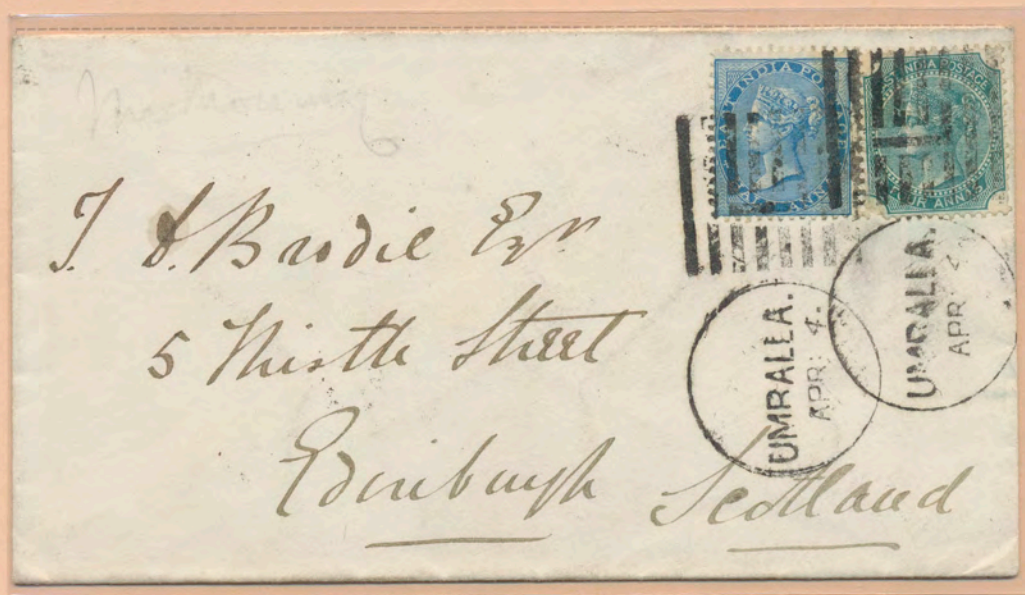 EAST INDIA POSTAGE
HALF ANNA
EAST INDIA POSTAGE
FOUR ANNAS
J. A. Brodie Esqr
5 Thistle Street
Edinburgh Scotland
UMRALLA.
APR: 4.
UMRALLA.
APR 4